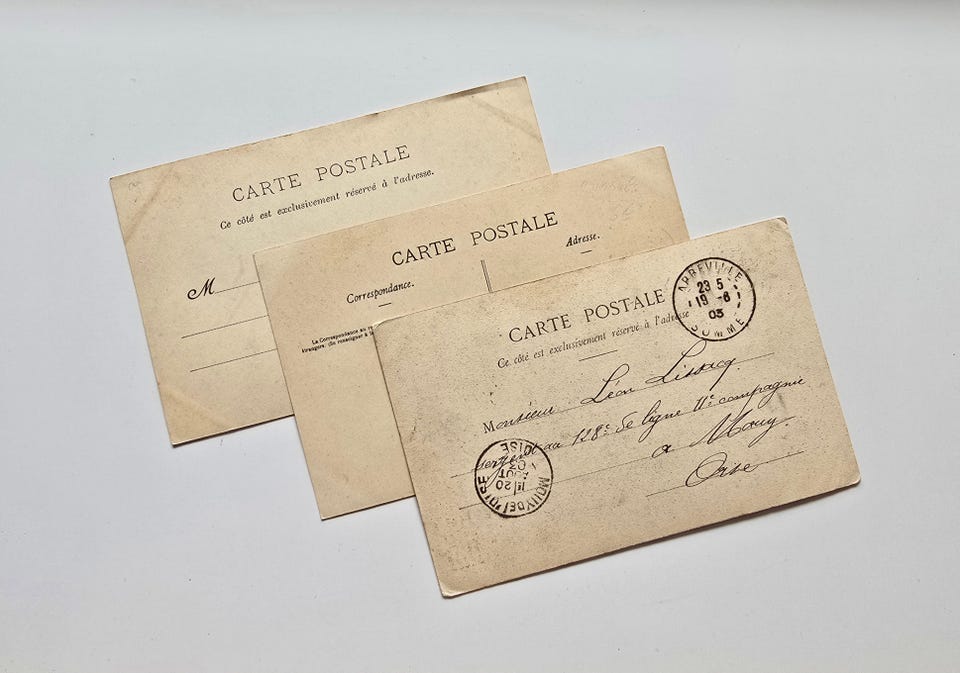 CARTE POSTALE
Ce côté est exclusivement réservé à l'adresse.
M
CARTE POSTALE
Correspondance.
Adresse.
La Correspondance au
étrangers: (Se renseigner à
CARTE POSTALE
Ce côté est exclusivement réservé à l'adresse
ABBEVILLE
23 5
19 -6
03
SOMME
Monsieur Léon
sergent au 128e de ligne 11e compagnie
a Mouy.
Oise
MOUY DE L'OISE
20
OISE